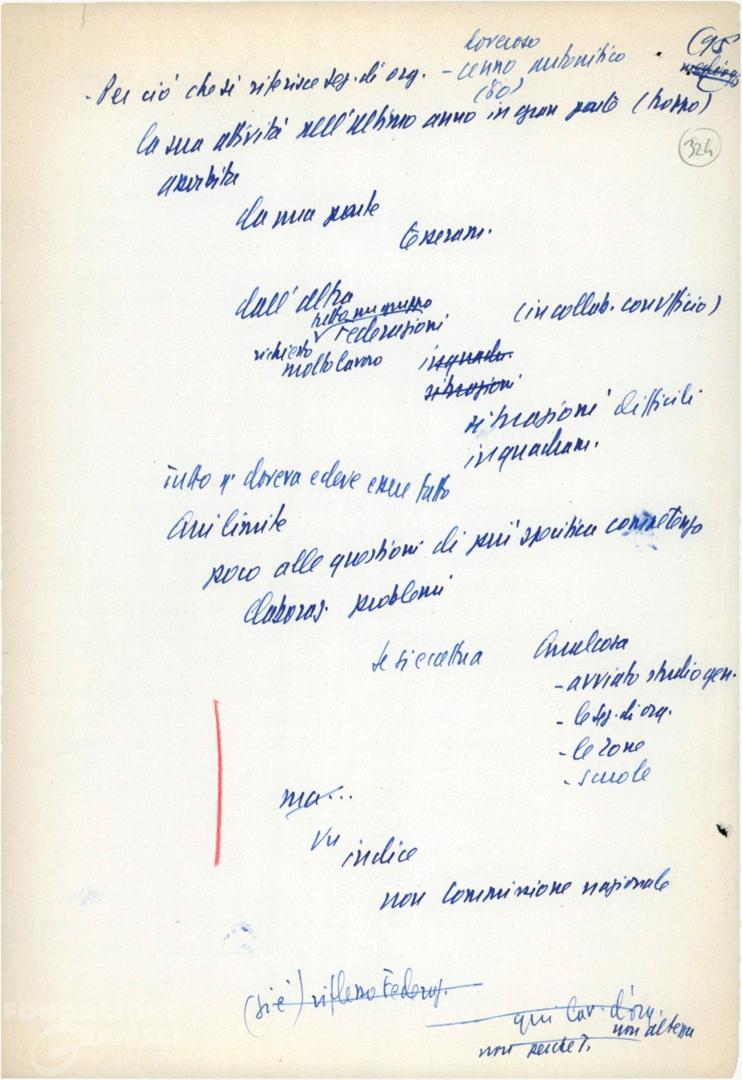 doveroso
- Per ciò che si riferisce seg. di org. - cenno autocritico
(60)
(95
324
la sua attività nell'ultimo anno in gran parte (troppo)
assorbita
da una parte
tesseram.
dall'altra
tutto un gruppo
federazioni
(in collab. con ufficio)
richiesto
molto lavoro
inquadr.
situazioni
situazioni difficili
inquadram.
tutto q. doveva e deve esser fatto
Qui limite
poco alle questioni di più specifica competenza
elaboraz. problemi
se si eccettua
Qualcosa
- avviato studio gen.
- le seg. di org.
- le zone
- scuole
ma...
Un
indice
non Commissione nazionale
(si è) riflesso Federaz.
qui lav. d'org.
non altezza
non perché?